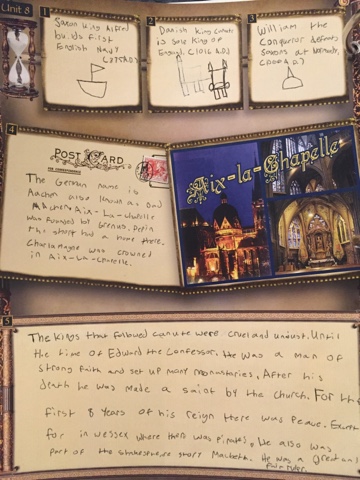 Unit 8
1
Saxon King Alfred
builds first
English Navy
(875AD)
2
Danish King Canute
is sole King of
Engual. (1016 A.D.)
3
William the
Conqueror defeats
saxons at
A.D.)
4
POST CARD
The German name is
Aachen also known as Bad
Achen. Aix-La-
was founded by Grenus. Pepin
the short had a home there.
Charlamagne was crowned
in Aix-La-Chapelle.
Aix-la-Chapelle
5
The Kings that follwed canute were cruel and unjust. Until
the time of Edward the Confessor. He was a man of
strong faith and set up many monastaries. After his
death he was made a saint by the church. For the
first 8 years of his reign there was Peace. Except
for in wessex where there was pirates. He also was
part of the shakespeare story Macbeth. He was a great and
ruler.